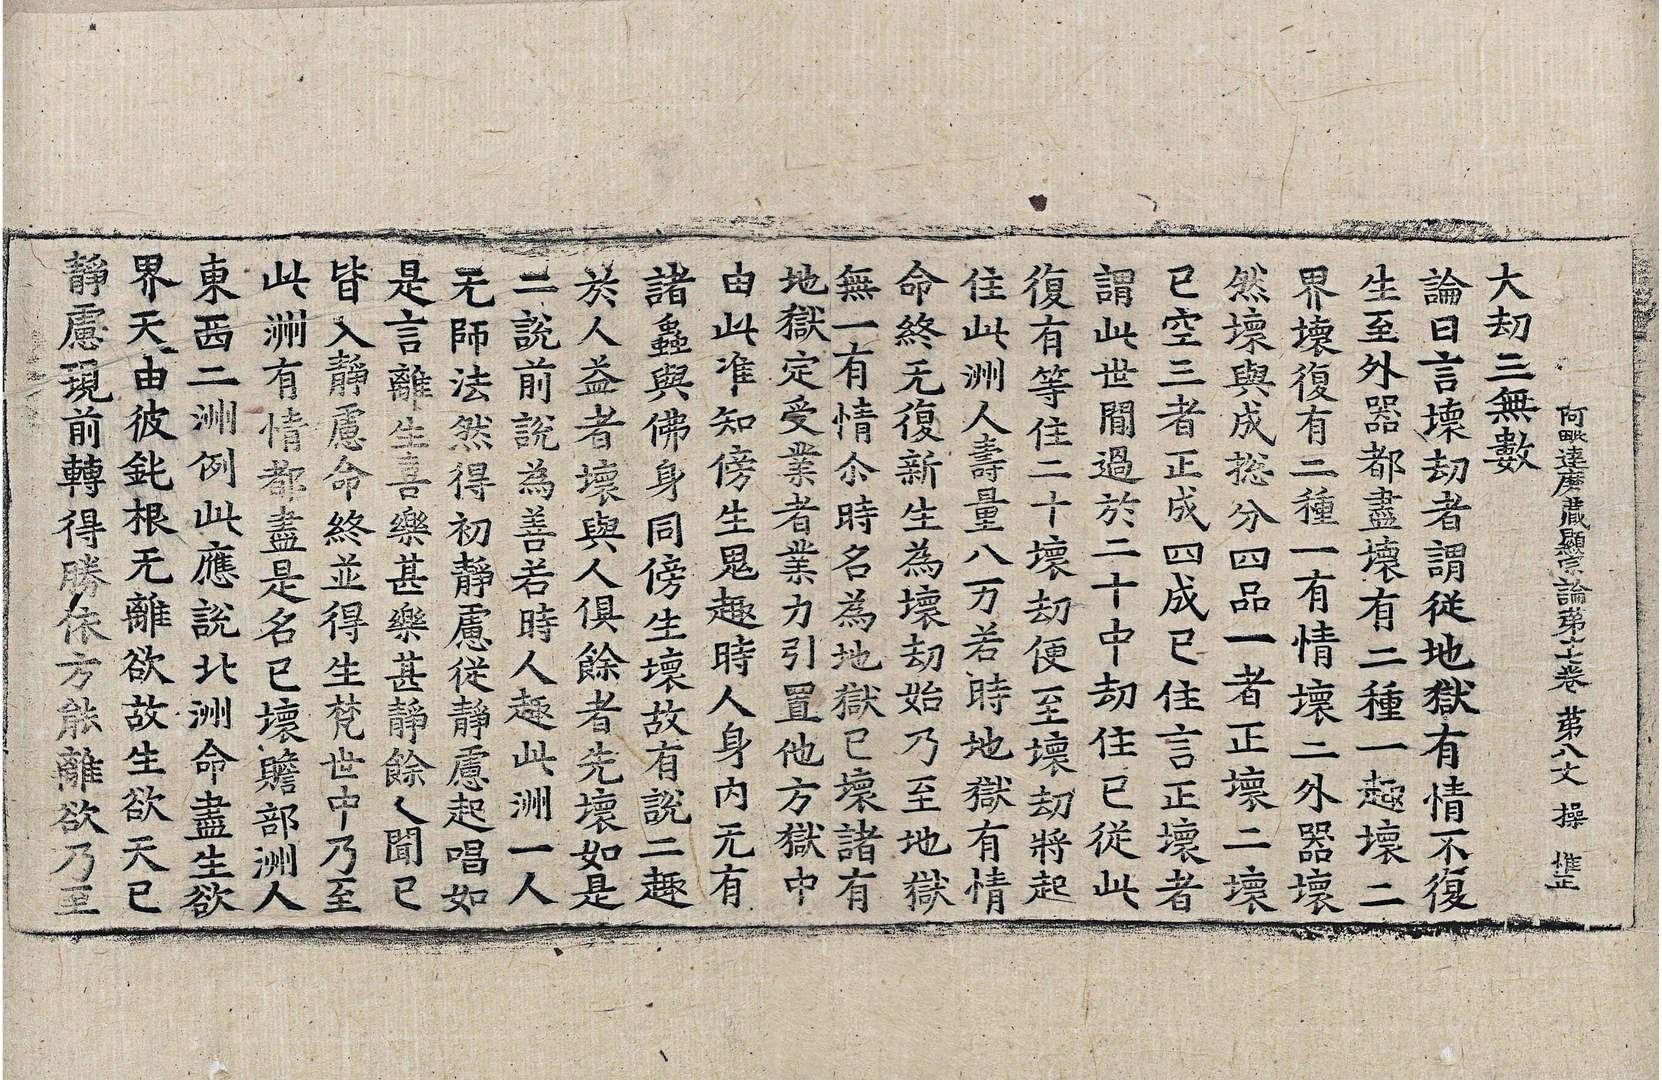 阿毗達磨藏顯宗論第十七卷 第八丈 操 惟正
大劫三無數
論曰言壞劫者謂從地獄有情不復
生至外器都盡壞有二種一趣壞二
界壞復有二種一有情壞二外器壞
然壞與成捴分四品一者正壞二壞
已空三者正成四成已住言正壞者
謂此世閒過於二十中劫住已從此
復有等住二十壞劫便至壞劫將起
住此洲人壽量八万若時地獄有情
命終无復新生為壞劫始乃至地獄
無一有情尒時名為地獄已壞諸有
地獄定受業者業力引置他方獄中
由此准知傍生鬼趣時人身內无有
諸蟲與佛身同傍生壞故有說二趣
於人益者壞與人俱餘者先壞如是
二說前說為善若時人趣此洲一人
无師法然得初靜慮從靜慮起唱如
是言離生喜樂甚樂甚靜餘人聞已
皆入靜慮命終並得生梵世中乃至
此洲有情都盡是名已壞贍部洲人
東西二洲例此應說北洲命盡生欲
界天由彼鈍根无離欲故生欲天已
靜慮現前轉得勝依方能離欲乃至